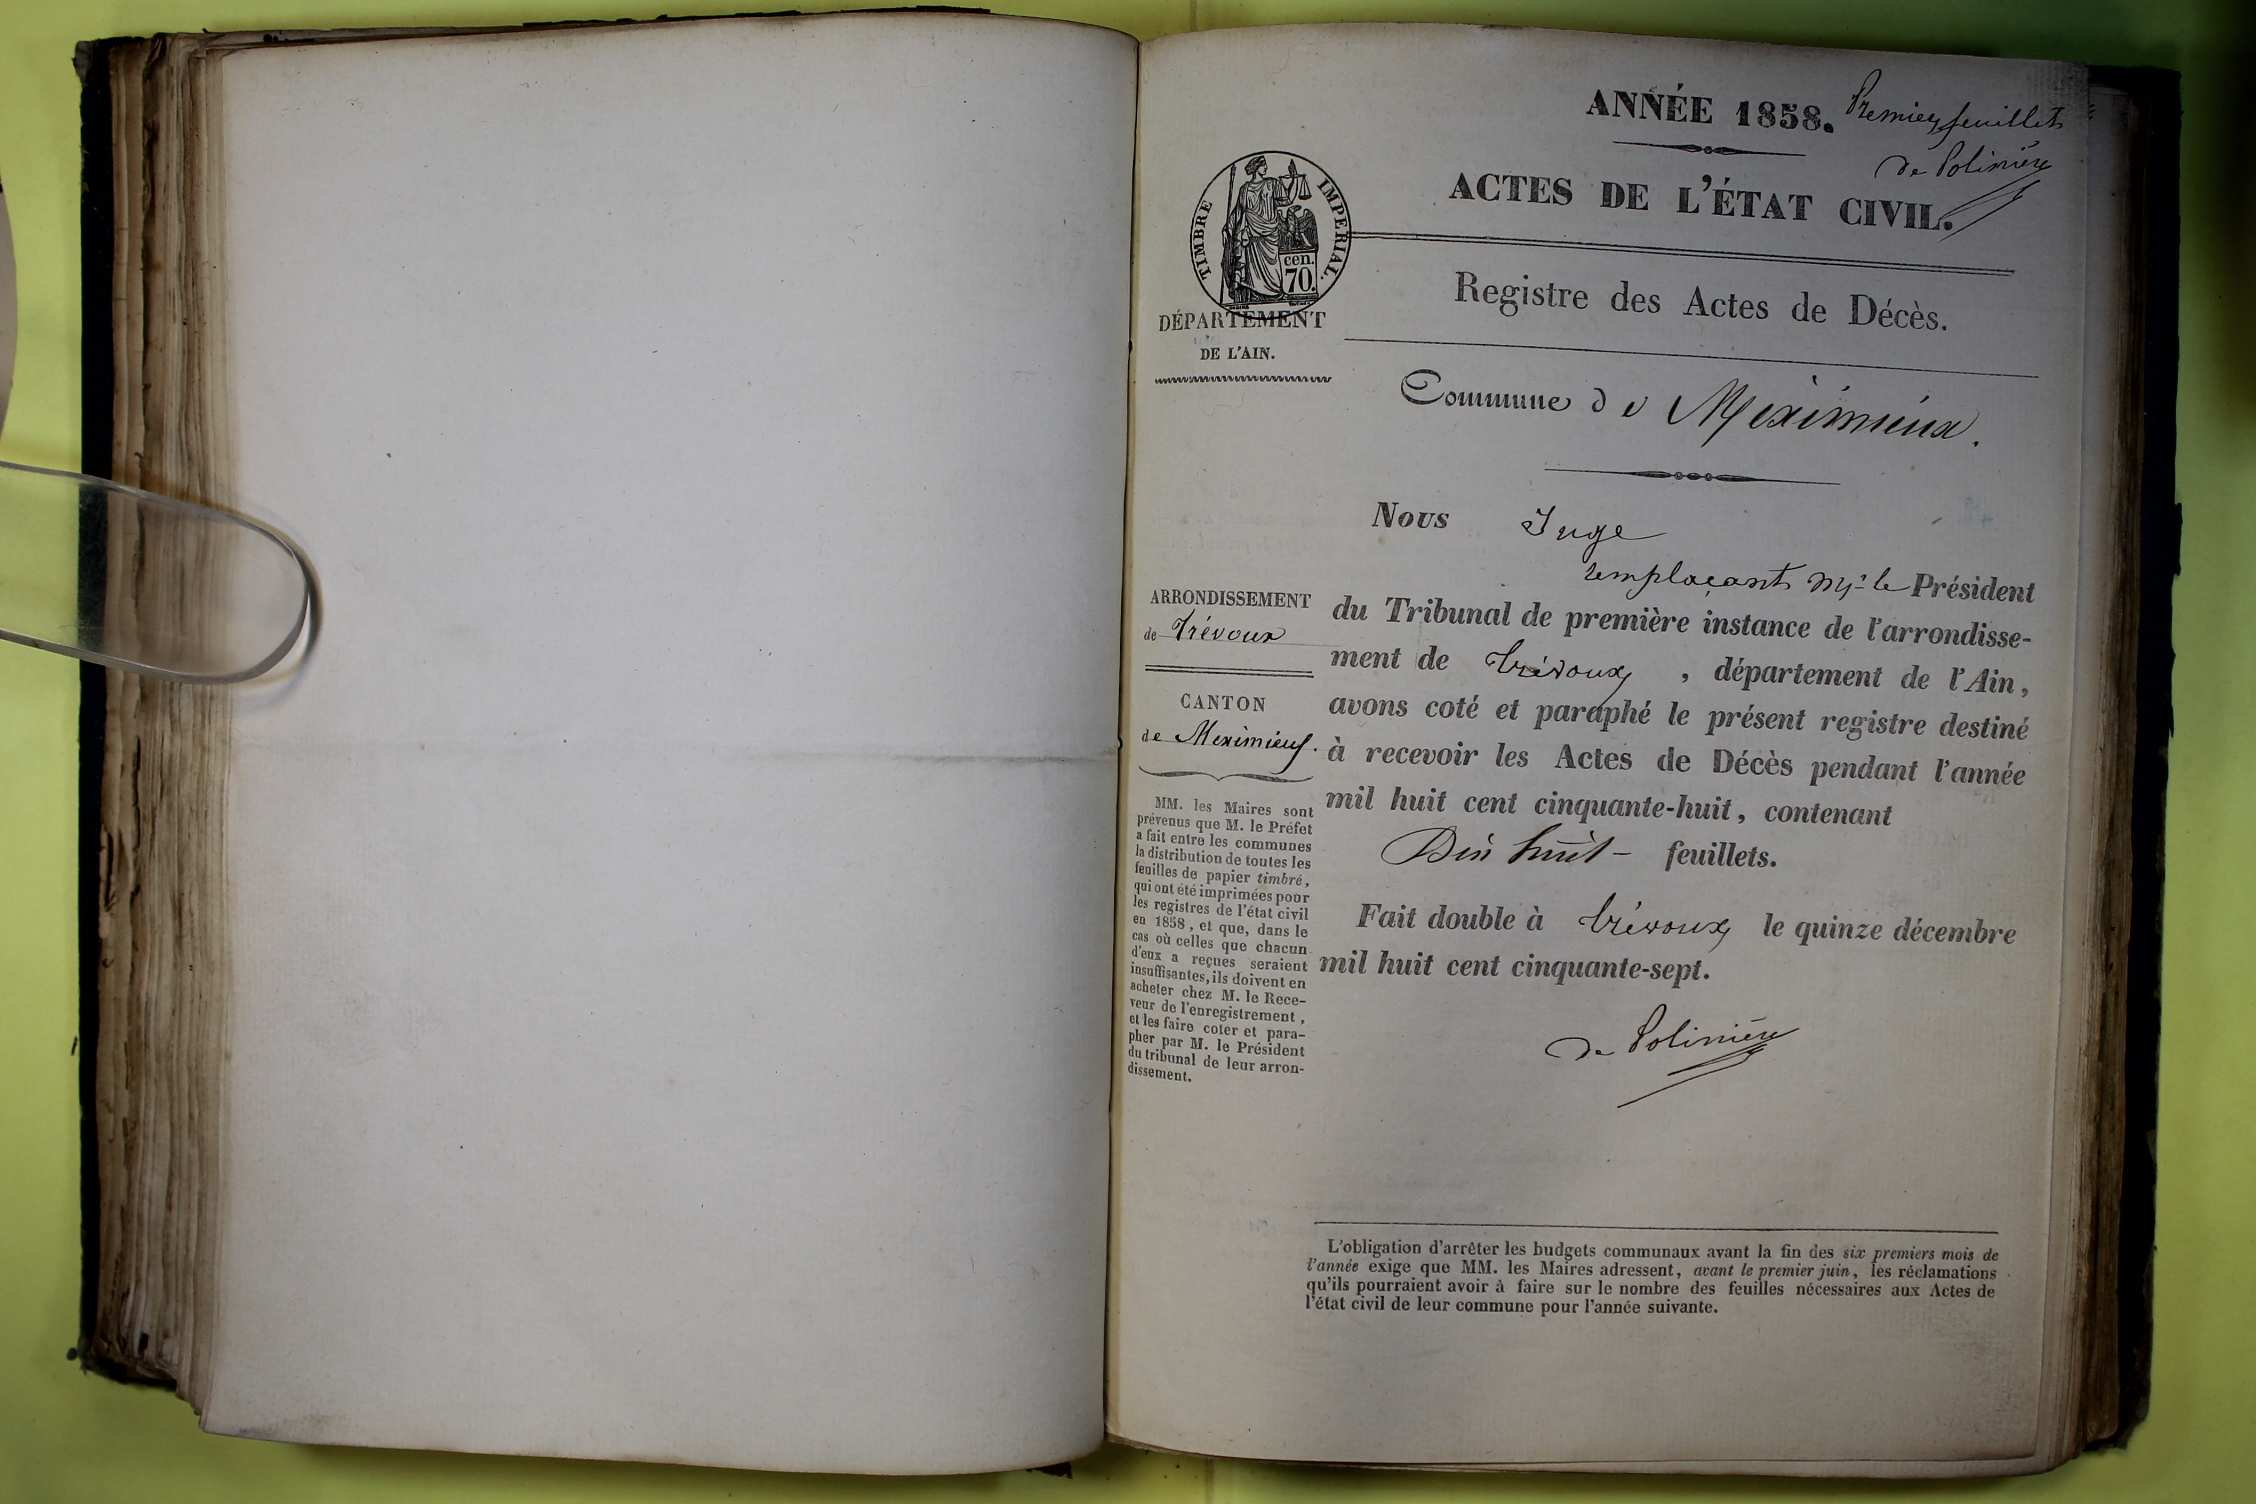 ANNÉE 1858.
Premier feuillet
de Polinière
ACTES DE L'ÉTAT CIVIL.
TIMBRE IMPERIAL.
cen.
70.
DÉPARTEMENT
DE L'AIN.
Registre des Actes de Décès.
Commune de Meximieux.
Nous Juge
remplaçant Mr le Président
du Tribunal de première instance de l'arrondisse-
ment de Trévoux, département de l'Ain,
avons coté et paraphé le présent registre destiné
à recevoir les Actes de Décès pendant l'année
mil huit cent cinquante-huit, contenant
Dix huit - feuillets.
Fait double à Trévoux le quinze décembre
mil huit cent cinquante-sept.
de Polinière
ARRONDISSEMENT
de Trévoux
CANTON
de Meximieux.
MM. les Maires sont
prévenus que M. le Préfet
a fait entre les communes
la distribution de toutes les
feuilles de papier timbré,
qui ont été imprimées pour
les registres de l'état civil
en 1858, et que, dans le
cas où celles que chacun
d'eux a reçues seraient
insuffisantes, ils doivent en
acheter chez M. le Rece-
veur de l'enregistrement,
et les faire coter et para-
pher par M. le Président
du tribunal de leur arron-
dissement.
L'obligation d'arrêter les budgets communaux avant la fin des six premiers mois de
l'année exige que MM. les Maires adressent, avant le premier juin, les réclamations
qu'ils pourraient avoir à faire sur le nombre des feuilles nécessaires aux Actes de
l'état civil de leur commune pour l'année suivante.